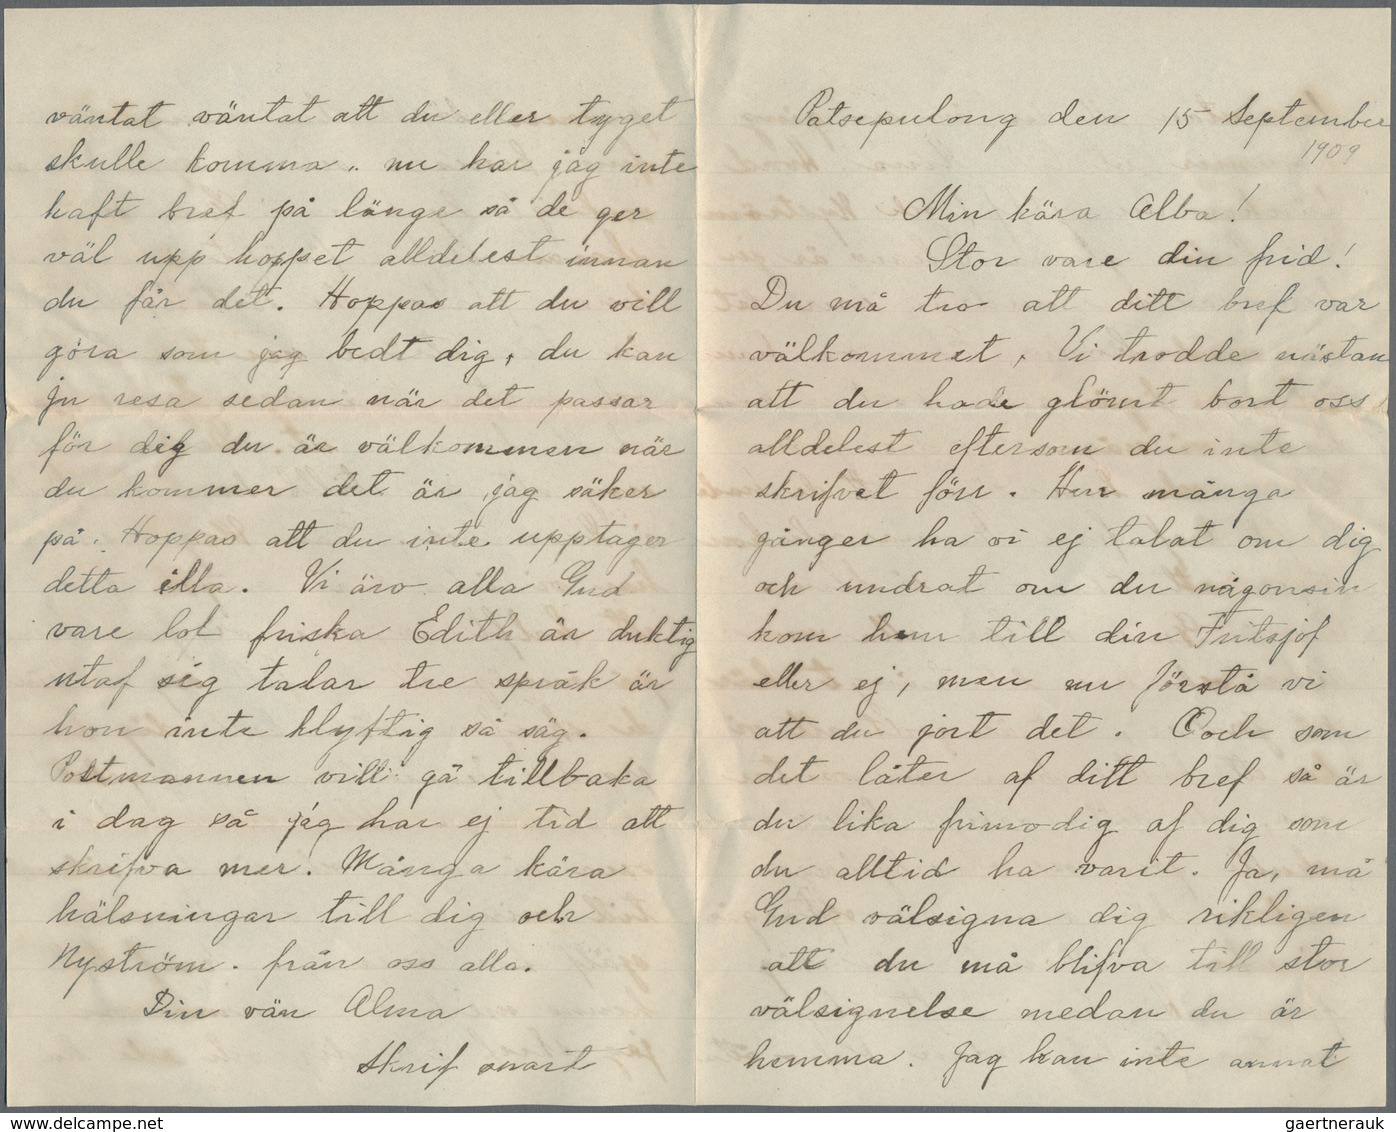 Patsepulong den 15 September
1909
Min kära Alba!
Stor vare din frid!
Du må tro att ditt bref var
välkommet, Vi trodde nästan
att du hade glömt bort oss
alldelest eftersom du inte
skrifvet förr. Hur många
gånger ha vi ej talat om dig
och undrat om du någonsin
kom hem till din Fritsjof
eller ej, men nu förstå vi
att du jort det. Och som
det låter af ditt bref så är
du lika frimodig af dig som
du alltid ha varit. Ja, må
Gud välsigna dig rikligen
att du må blifva till stor
välsignelse medan du är
hemma. Jag kan inte annat
väntat väntat att du eller tyget
skulle komma.. nu har jag inte
haft bref på länge så de ger
väl upp hoppet alldelest innan
du får det. Hoppas att du vill
göra som jag bedt dig, du kan
ju resa sedan när det passar
för dig du är välkommen när
du kommer det är jag säker
på. Hoppas att du inte upptager
detta illa. Vi äro alla Gud
vare lof friska Edith är duktig
utaf sig talar tre språk är
hon inte klyftig så säg.
Postmannen vill gå tillbaka
i dag så jag har ej tid att
skrifva mer. Många kära
hälsningar till dig och
Nyström. från oss alla.
Din vän Alma
Skrif snart
gaertnerauk.com